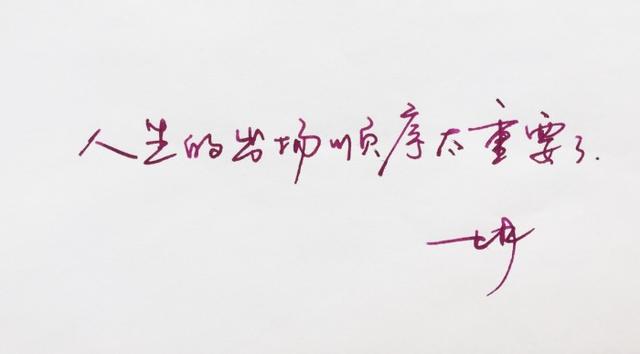 人生的出场顺序太重要了.